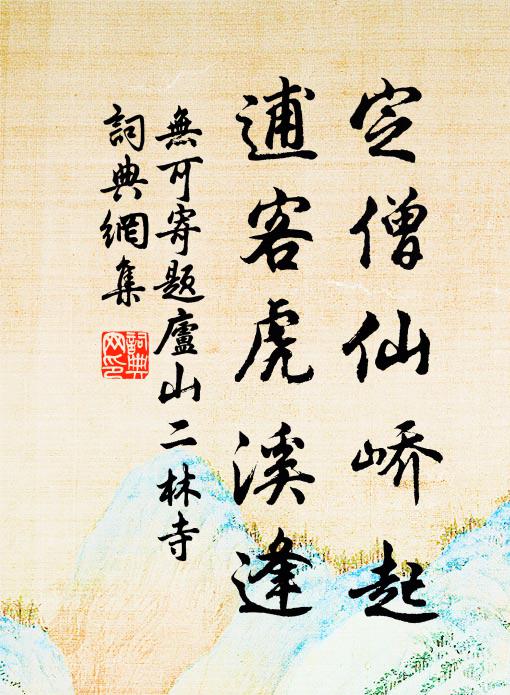 定僧仙峤起
逋客虎溪逢
無可寄题廬山二林寺
詞典網集
詞典网印